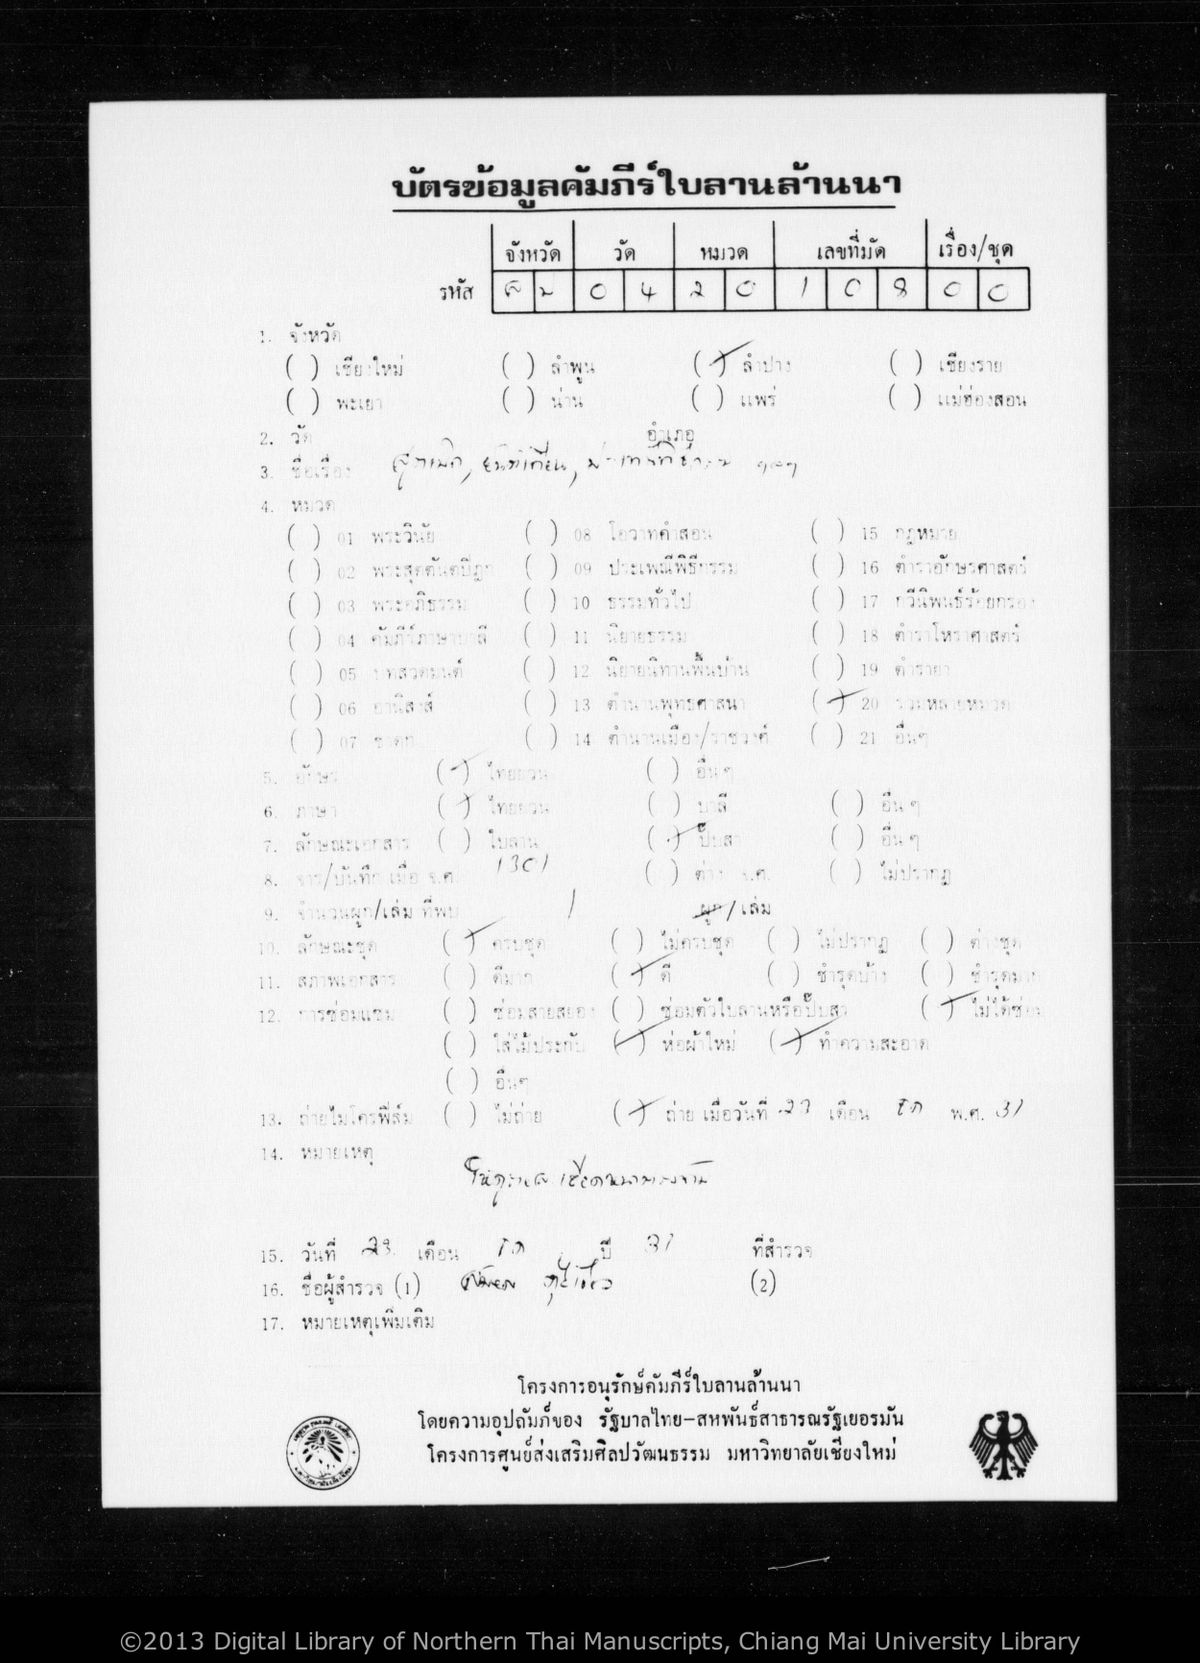 บัตรข้อมูลคัมภีร์ใบลานล้านนา
จังหวัด วัด หมวด เลขที่มัด เรื่อง/ชุด
รหัส 0 4 2 0 1 0 8 0 0
1. จังหวัด
( ) เชียงใหม่ ( ) ลำพูน (/) ลำปาง ( ) เชียงราย
( ) พะเยา ( ) น่าน ( ) แพร่ ( ) แม่ฮ่องสอน
2. วัด อำเภอ
3. ชื่อเรื่อง
4. หมวด
( ) 01 พระวินัย ( ) 08 โอวาทคำสอน ( ) 15 กฎหมาย
( ) 02 พระสุตตันตปิฎก ( ) 09 ประเพณีพิธีกรรม ( ) 16 ตำราอักษรศาสตร์
( ) 03 พระอภิธรรม ( ) 10 ธรรมทั่วไป ( ) 17 กวีนิพนธ์ร้อยกรอง
( ) 04 คัมภีร์ภาษาบาลี ( ) 11 นิยายธรรม ( ) 18 ตำราโหราศาสตร์
( ) 05 บทสวดมนต์ ( ) 12 นิยายนิทานพื้นบ้าน ( ) 19 ตำรายา
( ) 06 อานิสงส์ ( ) 13 ตำนานพุทธศาสนา (/) 20 รวมหลายหมวด
( ) 07 ชาดก ( ) 14 ตำนานเมือง/ราชวงศ์ ( ) 21 อื่นๆ
5. อักษร (/) ไทยยวน ( ) อื่นๆ
6. ภาษา (/) ไทยยวน ( ) บาลี ( ) อื่นๆ
7. ลักษณะเอกสาร ( ) ใบลาน (/) ปั๊บสา ( ) อื่นๆ
8. จาร/บันทึก เมื่อ จ.ศ. 1301 ( ) ต่าง จ.ศ. ( ) ไม่ปรากฏ
9. จำนวนผูก/เล่ม ที่พบ 1 ผูก/เล่ม
10. ลักษณะชุด (/) ครบชุด ( ) ไม่ครบชุด ( ) ไม่ปรากฏ ( ) ต่างชุด
11. สภาพเอกสาร ( ) ดีมาก (/) ดี ( ) ชำรุดบ้าง ( ) ชำรุดมาก
12. การซ่อมแซม ( ) ซ่อมสายสยอง ( ) ซ่อมตัวใบลานหรือปั๊บสา (/) ไม่ได้ซ่อม
( ) ใส่ไม้ประกับ (/) ห่อผ้าใหม่ (/) ทำความสะอาด
( ) อื่นๆ
13. ถ่ายไมโครฟิล์ม ( ) ไม่ถ่าย (/) ถ่าย เมื่อวันที่ 23 เดือน พ.ศ. 31
14. หมายเหตุ
15. วันที่ 23 เดือน ปี 31 ที่สำรวจ
16. ชื่อผู้สำรวจ (1) (2)
17. หมายเหตุเพิ่มเติม
โครงการอนุรักษ์คัมภีร์ใบลานล้านนา
โดยความอุปถัมภ์ของ รัฐบาลไทย-สหพันธ์สาธารณรัฐเยอรมัน
โครงการศูนย์ส่งเสริมศิลปวัฒนธรรม มหาวิทยาลัยเชียงใหม่
©2013 Digital Library of Northern Thai Manuscripts, Chiang Mai University Library